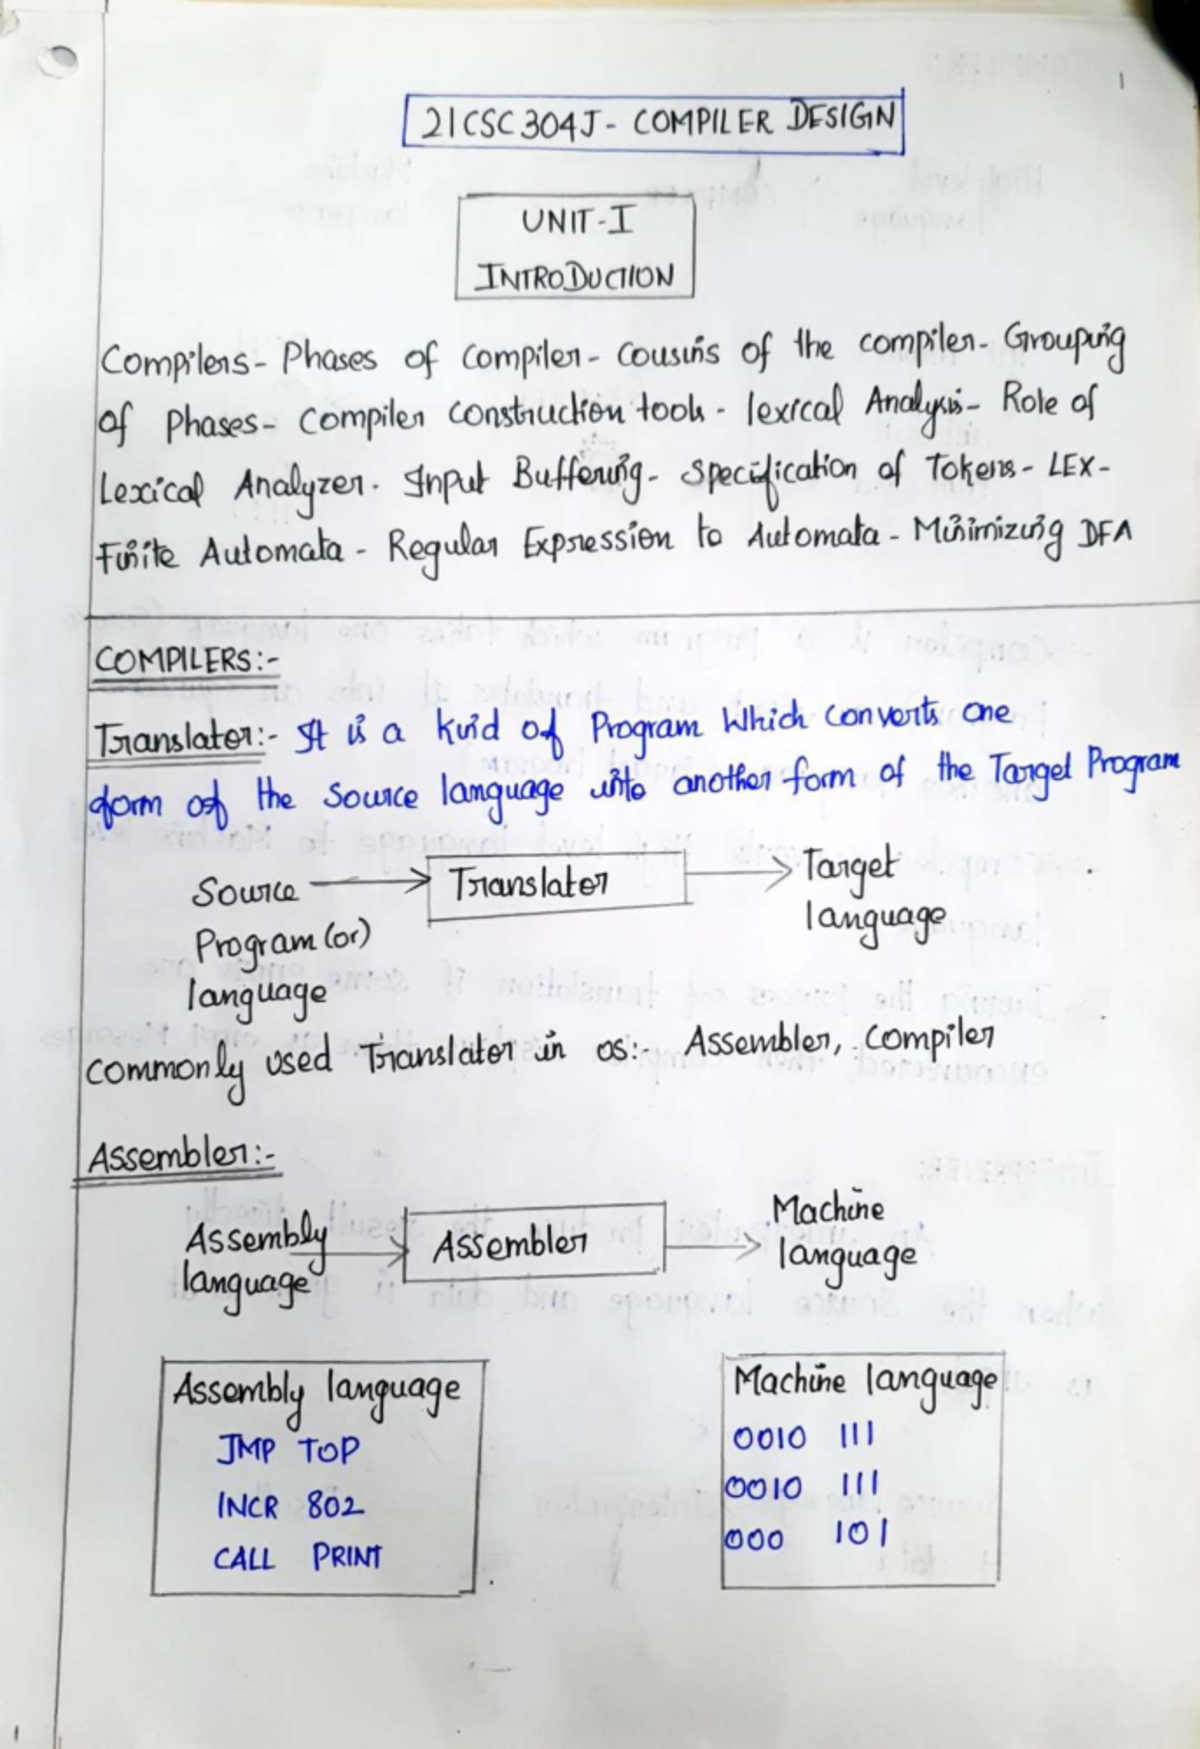 1
21CSC304J - COMPILER DESIGN
UNIT-I
INTRODUCTION
Compilers - Phases of compiler - cousins of the compiler - Grouping
of Phases - Compiler construction tools - lexical Analysis - Role of
Lexical Analyzer. Input Buffering - Specification of Tokens - LEX -
Finite Automata - Regular Expression to Automata - Minimizing DFA
COMPILERS:-
Translator:- It is a kind of Program Which converts one
form of the source language into another form of the Target Program
Source → Translator → Target
Program (or) language
language
commonly used Translator in os:- Assembler, Compiler
Assembler:-
Assembly → Assembler → Machine
language language
Assembly language
JMP TOP
INCR 802
CALL PRINT
Machine language
0010 111
0010 111
000 101
1